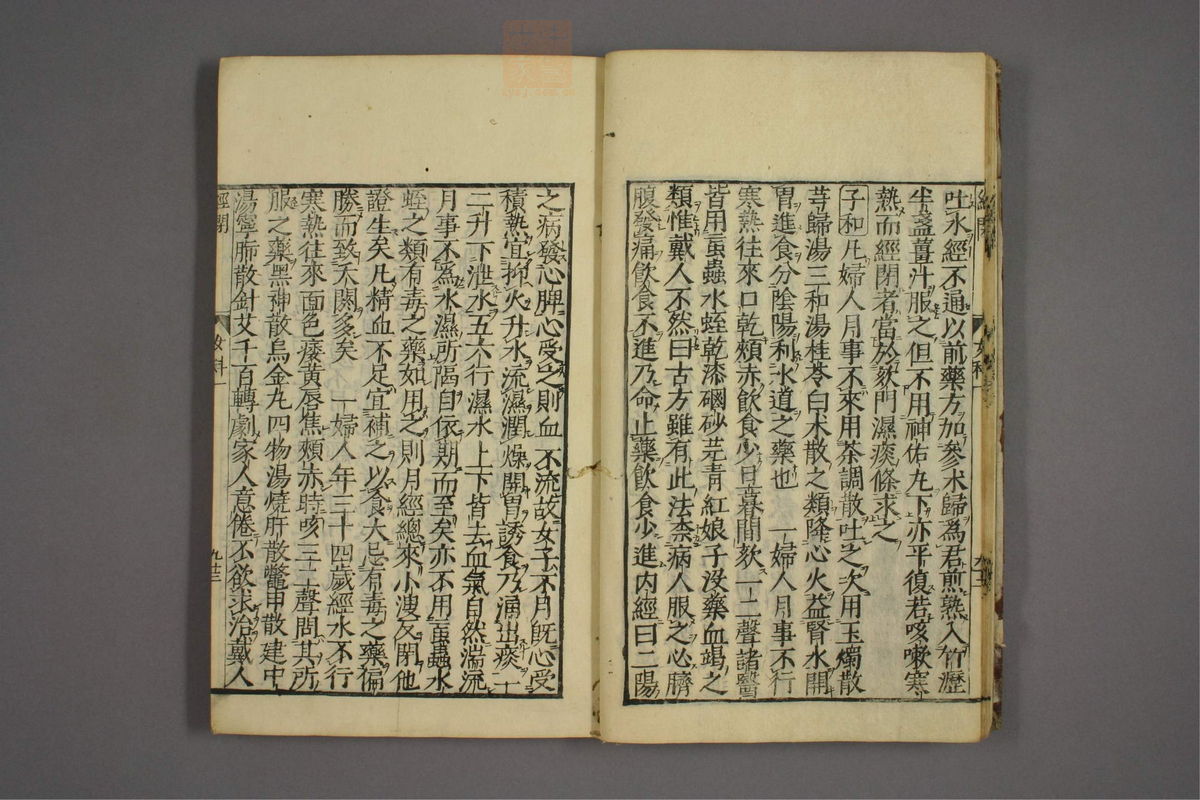 吐水經不通以前藥方加參朮歸爲君煎熟入竹瀝
半盞薑汁服之但不用神佑丸下亦平復若咳嗽寒
熱而經閉者當於欬門濕痰條求之
子和凡婦人月事不來用茶調散吐之次用玉燭散
芎歸湯三和湯桂苓白朮散之類降心火益腎水開
胃進食分陰陽利水道之藥也 一婦人月事不行
寒熱往來口乾頰赤飲食少旦暮間欬一二聲諸醫
皆用䖟蟲水蛭乾漆硇砂芫青紅娘子沒藥血竭之
類惟戴人不然曰古方雖有此法柰病人服之心臍
腹發痛飲食不進乃命止藥飲食少進内經曰二陽
之病發心脾心受之則血不流故女子不月既心受
積熱宜抑火升水流濕潤燥開胃誘食乃涌出痰一
二升下泄水五六行濕水上下皆去血氣自然湍流
月事不爲水濕所隔自依期而至矣亦不用䖟蟲水
蛭之類有毒之藥如用之則月經總來小溲反閉他
證生矣凡精血不足宜補之以食大忌有毒之藥偏
勝而致夭閼多矣 一婦人年三十四歲經水不行
寒熱往來面色痿黄唇焦頰赤時咳三二聲問其所
服之藥黑神散烏金丸四物湯燒肝散鱉甲散建中
湯寧肺散針艾千百轉劇家人意倦不欲求治戴人
經閉
女科一
九十三